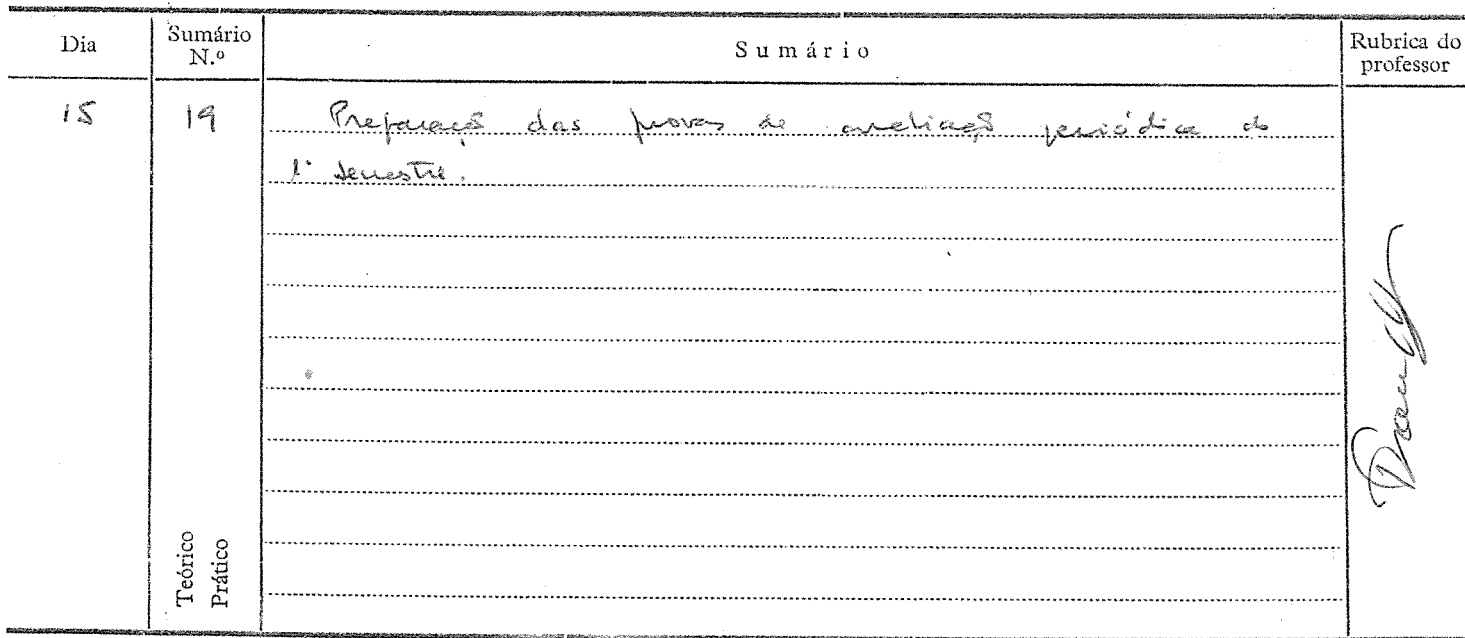 Dia
Sumário
N.º
Sumário
Rubrica do
professor
15
19
Preparação das provas de avaliação periódica do
1º semestre.
Teórico
Prático